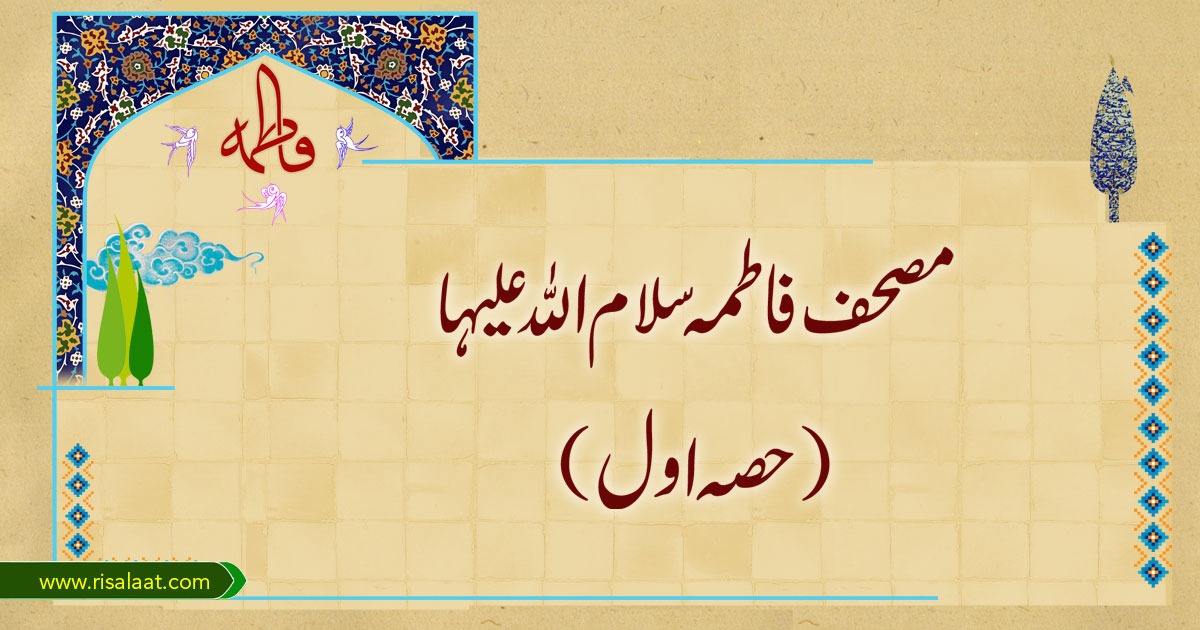 فاطمہ
مصحف فاطمہ سلام اللہ علیہا
(حصہ اول)
www.risalaat.com